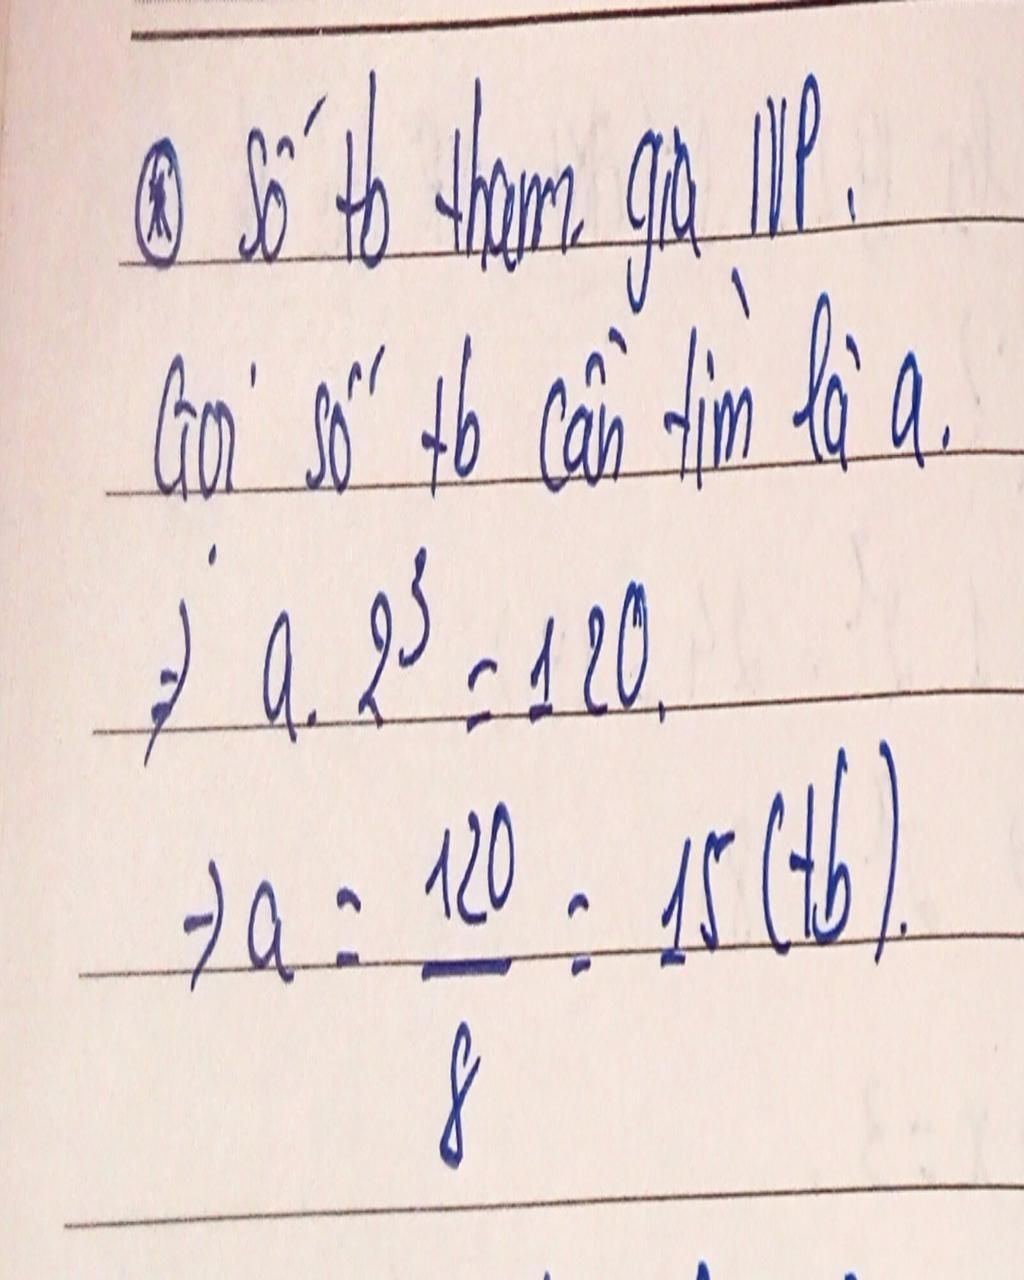 Số tb tham gia NP.
Gọi số tb cần tìm là a.
⇒ a. 2³ = 120.
→ a = 120/8 = 15 (tb).